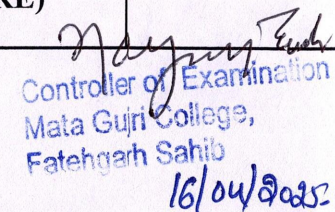 RE)
Controller of Examination
Mata Gujri College,
Fatehgarh Sahib
16/04/2025